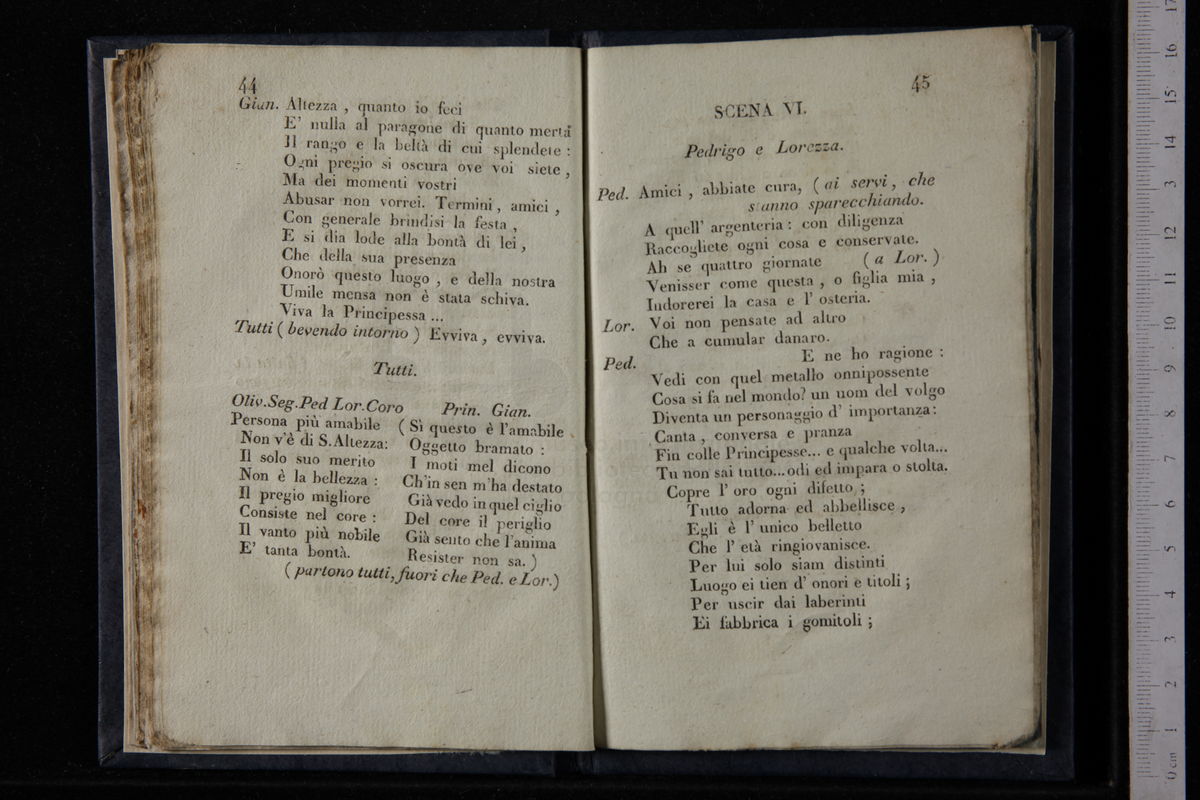 44
Gian. Altezza , quanto io feci
E' nulla al paragone di quanto merta
Il rango e la beltà di cui splendete :
Ogni pregio si oscura ove voi siete ,
Ma dei momenti vostri
Abusar non vorrei. Termini , amici ,
Con generale brindisi la festa ,
E si dia lode alla bontà di lei ,
Che della sua presenza
Onorò questo luogo , e della nostra
Umile mensa non è stata schiva.
Viva la Principessa ...
Tutti ( bevendo intorno ) Evviva , evviva.
Tutti.
Oliv. Seg. Ped Lor. Coro
Persona più amabile
Non v'è di S. Altezza:
Il solo suo merito
Non è la bellezza :
Il pregio migliore
Consiste nel core :
Il vanto più nobile
E' tanta bontà.
Prin. Gian.
( Sì questo è l'amabile
Oggetto bramato :
I moti mel dicono
Ch'in sen m'ha destato
Già vedo in quel ciglio
Del core il periglio
Già sento che l'anima
Resister non sa. )
( partono tutti, fuori che Ped. e Lor. )
45
SCENA VI.
Pedrigo e Lorezza.
Ped. Amici , abbiate cura, ( ai servi, che
stanno sparecchiando.
A quell' argenteria : con diligenza
Raccogliete ogni cosa e conservate.
Ah se quattro giornate ( a Lor. )
Venisser come questa , o figlia mia ,
Indorerei la casa e l' osteria.
Lor. Voi non pensate ad altro
Che a cumular danaro.
Ped. E ne ho ragione :
Vedi con quel metallo onnipossente
Cosa si fa nel mondo? un uom del volgo
Diventa un personaggio d' importanza:
Canta , conversa e pranza
Fin colle Principesse... e qualche volta...
Tu non sai tutto... odi ed impara o stolta.
Copre l' oro ogni difetto ;
Tutto adorna ed abbellisce ,
Egli è l' unico belletto
Che l' età ringiovanisce.
Per lui solo siam distinti
Luogo ei tien d' onori e titoli ;
Per uscir dai laberinti
Ei fabbrica i gomitoli ;
0 cm 1 2 3 4 5 6 7 8 9 10 11 12 13 14 15 16 17